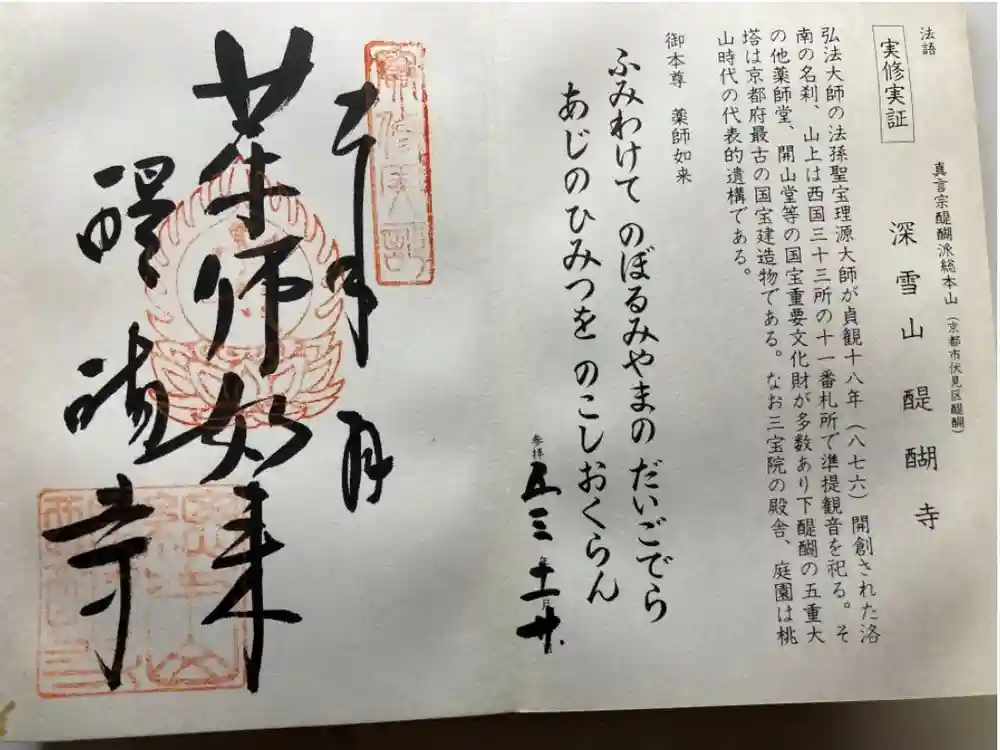 法語
実修実証
真言宗醍醐派総本山(京都市伏見区醍醐)
深雪山醍醐寺
弘法大師の法孫聖宝理源大師が貞観十八年(八七六)開創された洛
南の名刹、山上は西国三十三所の十一番札所で準提観音を祀る。そ
の他薬師堂、開山堂等の国宝重要文化財が多数あり下醍醐の五重大
塔は京都府最古の国宝建造物である。なお三宝院の殿舎、庭園は桃
山時代の代表的遺構である。
御本尊 薬師如来
ふみわけて のぼるみやまの だいごでら
あじのひみつを のこしおくらん
参拝 五三年十一月廿
薬師如来
醍醐寺